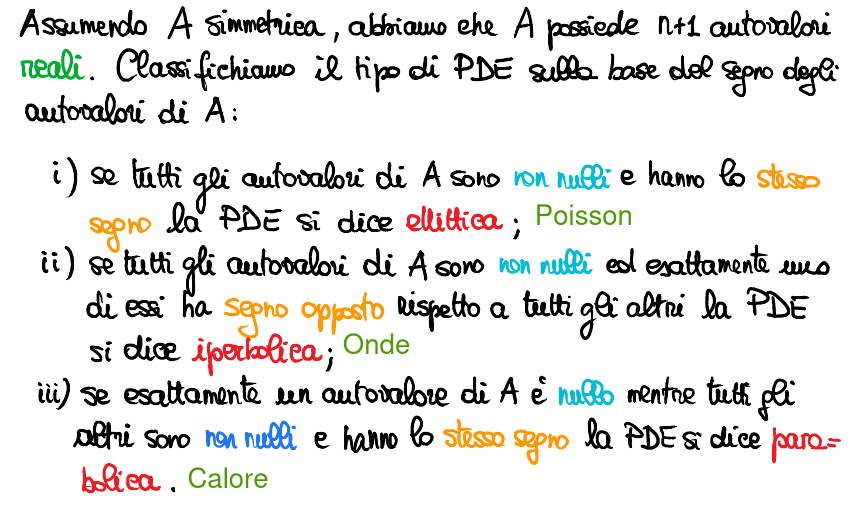 Assumendo A simmetrica, abbiamo che A possiede n+1 autovalori
reali. Classifichiamo il tipo di PDE sulla base del segno degli
autovalori di A:
i) se tutti gli autovalori di A sono non nulli e hanno lo stesso
segno la PDE si dice ellittica; Poisson
ii) se tutti gli autovalori di A sono non nulli ed esattamente uno
di essi ha segno opposto rispetto a tutti gli altri la PDE
si dice iperbolica; Onde
iii) se esattamente un autovalore di A è nullo mentre tutti gli
altri sono non nulli e hanno lo stesso segno la PDE si dice para=
bolica. Calore